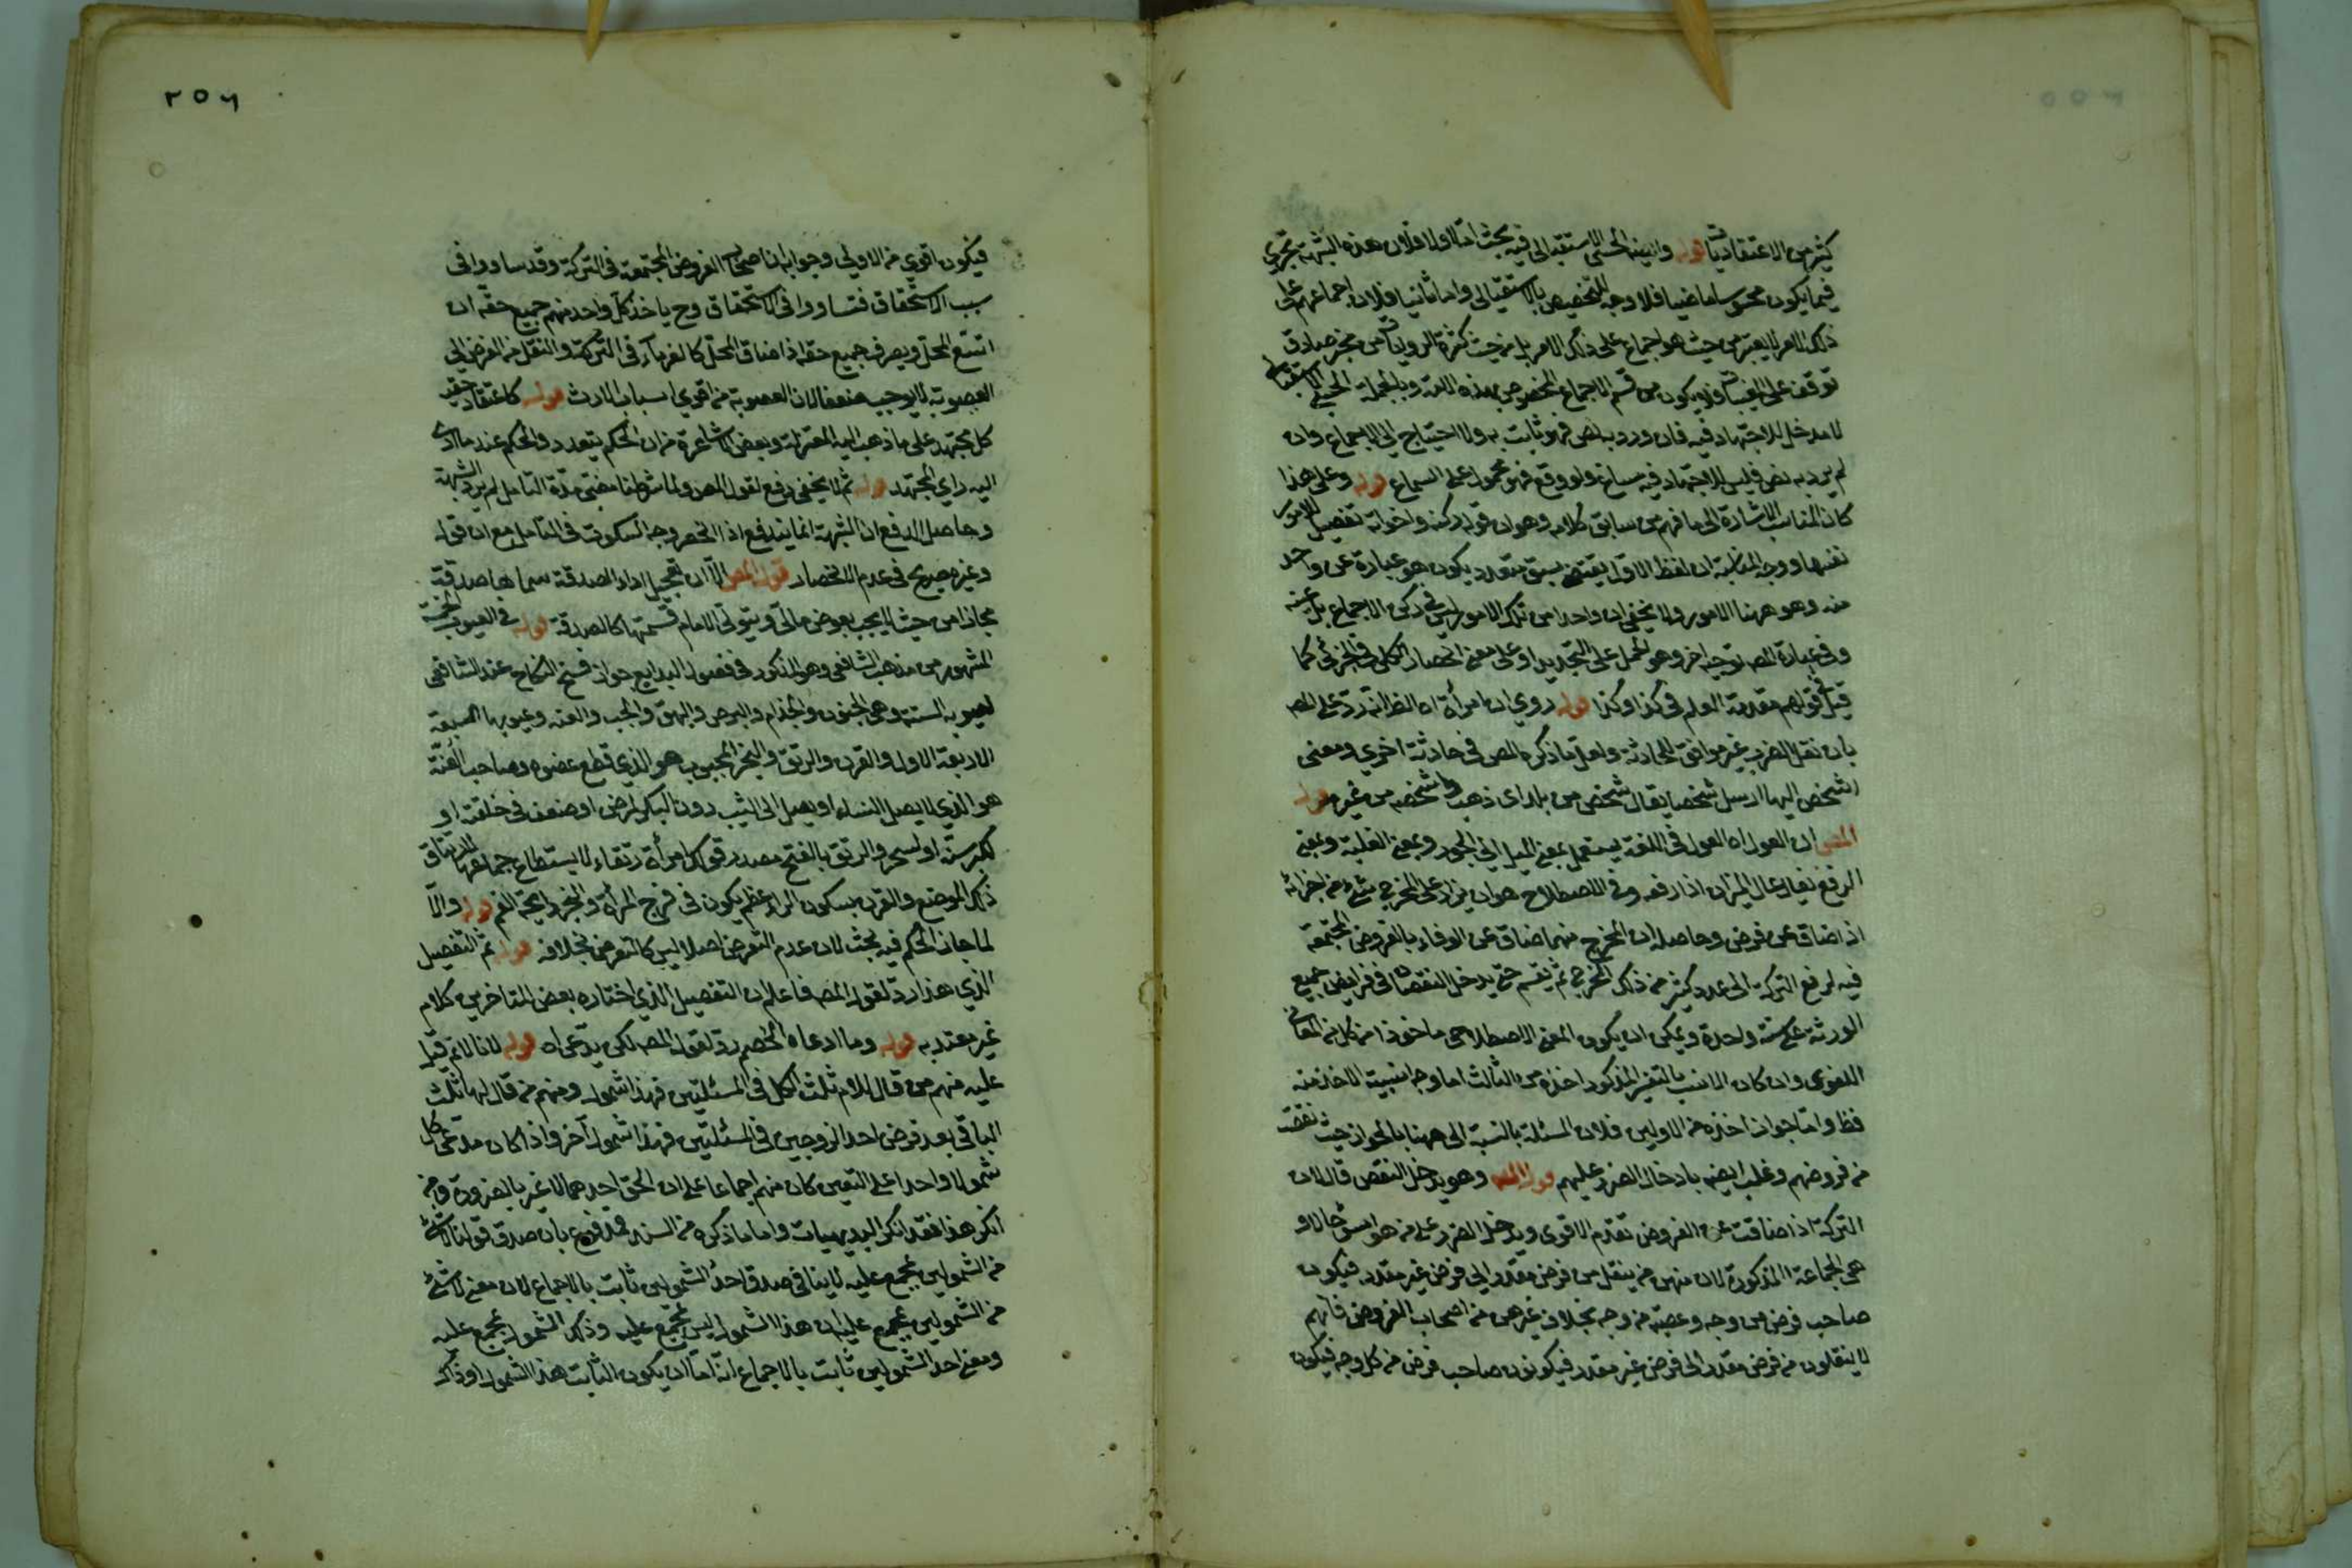 كثير من الاعتقاديات قوله والبينة الحسي الاستقبالي فيه بحث اما اولا فلان هذه الشبهة تجري
فيما يكون محسوسا ماضيا فلا وجه للتخصيص بالاستقبالي واما ثانيا فلان اجماعهم على
ذلك الامر لا يعتبر من حيث هو اجماع على ذلك الامر بل من حيث كثرة الروايات عن مخبر صادق
توقف على المغيبات فلا يكون من قسم الاجماع المخصوص بهذه الامة وبالجملة الحسي الاستقبالي
لا مدخل للاجتهاد فيه فان ورد به نص فهو ثابت به ولا احتياج الى الاجماع وان
لم يرد به نص فليس للاجتهاد فيه مساغ ولو وقع فهو محمول على السماع قوله وعلى هذا
كان المناسب الاشارة الى ما فهم من سابق كلامه وهو ان قوله ركنه واخواته تفصيل للامور
نفسها ووجه المناسبة ان لفظ الاول يقتضي سبق متعدد يكون هو عبارة عن واحد
منه وهو ههنا الامور ولا يخفى ان واحدا من تلك الامور ليس في ركن الاجماع بل عينه
وفي عبارة المص توجيه اخر وهو الحمل على التجريد او على معنى انحصار الكلي في الجزئي كما
قيل في قولهم مقدمة العلم في كذا وكذا قوله روي ان امرأة اه الظ انه رد على المص
بان نقل الضرب غير موافق للحادثة ولعل ما ذكره المص في حادثة اخرى ومعنى
اشخص اليها ارسل شخصا يقال شخص من بلد اى ذهب واشخصه من غيره قوله
المص ان العول اه العول في اللغة يستعمل بمعنى الميل الى الجور وبمعنى الغلبة وبمعنى
الرفع يقال عال الميزان اذا رفعه وفي الاصطلاح هو ان يزاد على المخرج شئ من اجزائه
اذا ضاق عن فرض وحاصله ان المخرج مهما ضاق عن الوفاء بالفروض المجتمعة
فيه لرفع التركة الى عدد كثير من ذلك المخرج ثم يقسم حتى يدخل النقصان في فرايض جميع
الورثة على نسبة واحدة ويمكن ان يكون المعنى الاصطلاحي ماخوذا من كل من المعاني
اللغوى وان كان الانسب بالتفسير المذكور اخذه من الثالث اما وجه انسبية الاخذ منه
فظ واما جواز اخذه من الاولين فلان المسئلة بالنسبة الى ههنا بالجواز حيث نقصت
من فروضهم وغلب ايضه بادخال الضرر عليهم قوله المص وهو يدخل النقص قال لان
التركة اذا ضاقت عن الفروض تقدم الاقوى ويدخل الضرر على من هو اسوء حالا و
هى الجماعة المذكورة لان منهن من ينتقل من فرض مقدر الى فرض غير مقدر فيكون
صاحب فرض من وجه وعصبة من وجه بخلاف غيرهن من اصحاب الفروض فانهم
لا ينقلون من فرض مقدر الى فرض غير مقدر فيكونون صاحب فرض من كل وجه فيكون
٢٥٦
فيكون اقوى من الاولى وجوابه ان اصحاب الفروض المجتمعة في التركة وقد ساووا في
سبب الاستحقاق فتساووا في الاستحقاق وح ياخذ كل واحد منهم جميع حقه ان
اتسع المحل ويصرف جميع حقه اذا ضاق المحل كالغرماء في التركة والنقل من الفرض الى
العصوبة لا يوجب ضعفا لان العصوبة من اقوى اسباب الارث قوله كاعتقاد حقية
كل مجتهد على ما ذهب اليه المعتزلة وبعض الاشاعرة من ان الحكم يتعدد والحكم عند ما ادى
اليه راي المجتهد قوله ثم لا يخفى دفع لقول المص ولما شرطنا مضى مدة التامل لم يرد الشبهة
وحاصل الدفع ان الشبهة انما يندفع اذا انحصر وجه السكوت في التامل مع ان قوله
وغيره صريح في عدم الانحصار قوله المص الا ان تعجيل اداء الصدقة سماها صدقة
مجازا من حيث لا يجب بعوض مالي ويتولى الامام قسمتها كالصدقة قوله في العيوب الخمسة
المشهور من مذهب الشافعي وهو المذكور في فصول البدايع جواز فسخ النكاح عند الشافعي
لعيوبه الستة وهى الجنون والجذام والبرص والبهق والجب والعنه وعيوبها السبعة
الاربعة الاول والقرن والرتق والبخر المجبوب هو الذي قطع عضوه وصاحب العنة
هو الذي لا يصل النساء او يصل الى الثيب دون البكر لمرض او ضعف في خلقته او
لكبر سنه او لسحر والرتق بالفتح مصدر قولك امرأة رتقاء لا يستطاع جماعها لارتتاق
ذلك الموضع والقرن بسكون الراء عظم يكون في فرج المرأة والبخر رايحة الفم قوله والا
لما جاز الحكم فيه بحث لان عدم التعرض اصلا ليس كالتعرض بخلافه قوله ثم التفصيل
الذي هذا رد لقول المص فاعلم ان التفصيل الذي اختاره بعض المتاخرين كلام
غير معتد به قوله وما ادعاه الخصم رد لقول المص لكن يدعى اه قوله لانا لا نم قيل
عليه منهم من قال للام ثلث الكل في المسئلتين فهذا شمول ومنهم من قال لها ثلث
الباقي بعد فرض احد الزوجين في المسئلتين فهذا شمول آخر واذا كان مدعى كل
شمولا واحدا على التعين كان منهم اجماعا على ان الحق احدهما لا غير بالضرورة ومن
انكر هذا فقد انكر البديهيات واما ما ذكره من السند فمدفوع بان صدق قولنا لا شئ
من الشمولين بمجمع عليه لا ينافي صدق احد الشمولين ثابت بالاجماع لان معنى لا شئ
من الشمولين بمجمع عليه ان هذا الشمول ليس بمجمع عليه وذلك الشمول بمجمع عليه
ومعنى احد الشمولين ثابت بالاجماع انه اما ان يكون الثابت هذا الشمول او ذاك